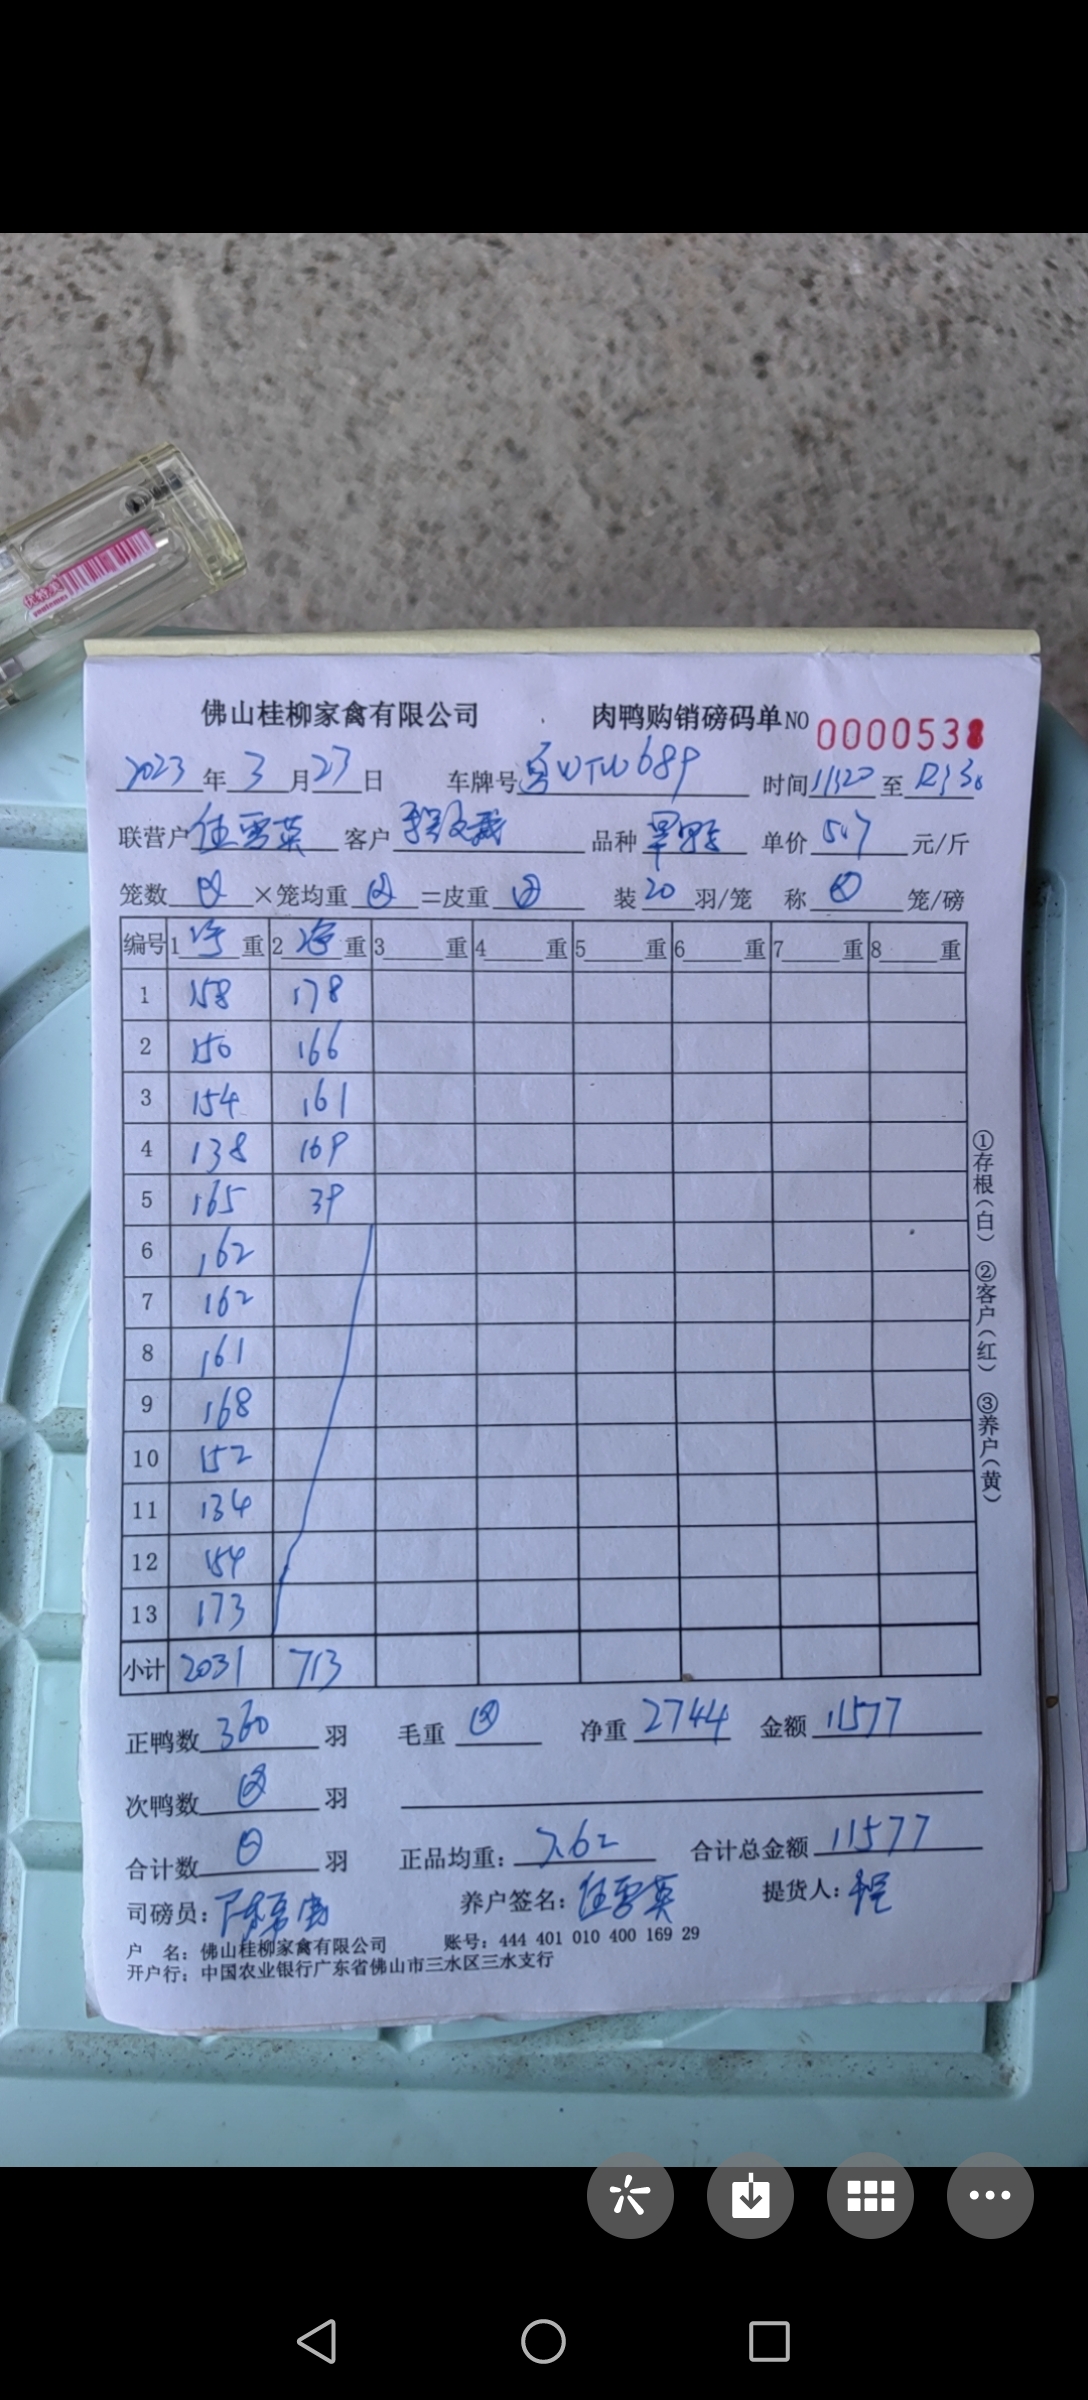 佛山桂柳家禽有限公司 肉鸭购销磅码单NO 0000538
2023年3月27日 车牌号 WTW689 时间11:20至12:30
联营户任雪英 客户 品种 单价 元/斤
笼数 ×笼均重 =皮重 装20羽/笼 称 笼/磅
编号 1净重 2净重 3重 4重 5重 6重 7重 8重
1 158 178
2 150 166
3 154 161
4 138 169
5 165 39
6 162
7 162
8 161
9 168
10 152
11 134
12 154
13 173
小计 2031 713
正鸭数360羽 毛重 净重2744 金额11577
次鸭数 羽
合计数 羽 正品均重:7.62 合计总金额11577
司磅员: 养户签名:任雪英 提货人:程
户 名:佛山桂柳家禽有限公司 账号:444 401 010 400 169 29
开户行:中国农业银行广东省佛山市三水区三水支行
①存根(白) ②客户(红) ③养户(黄)